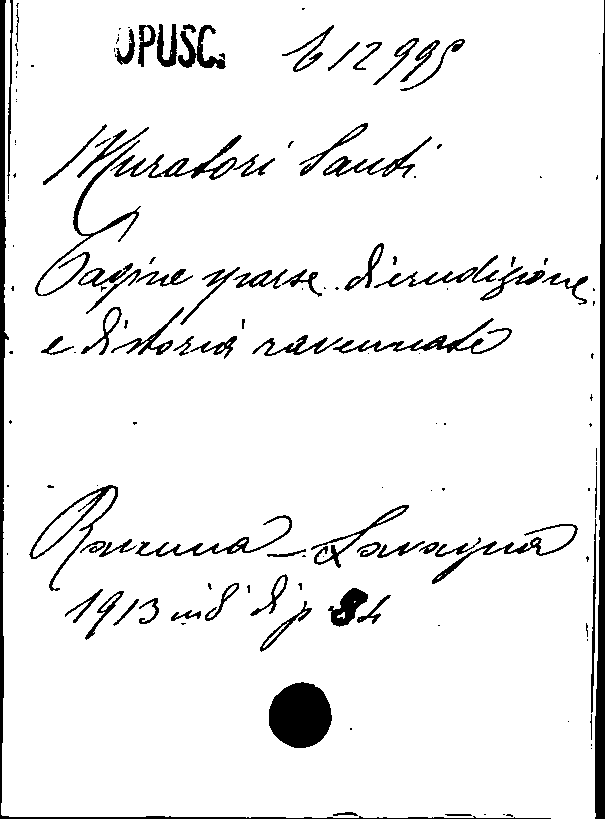 OPUSC. b 12995
Muratori Santi
Pagine sparse di erudizione
e di storia ravennate
Ravenna - Lavagna
1913 in 8° di p. 84